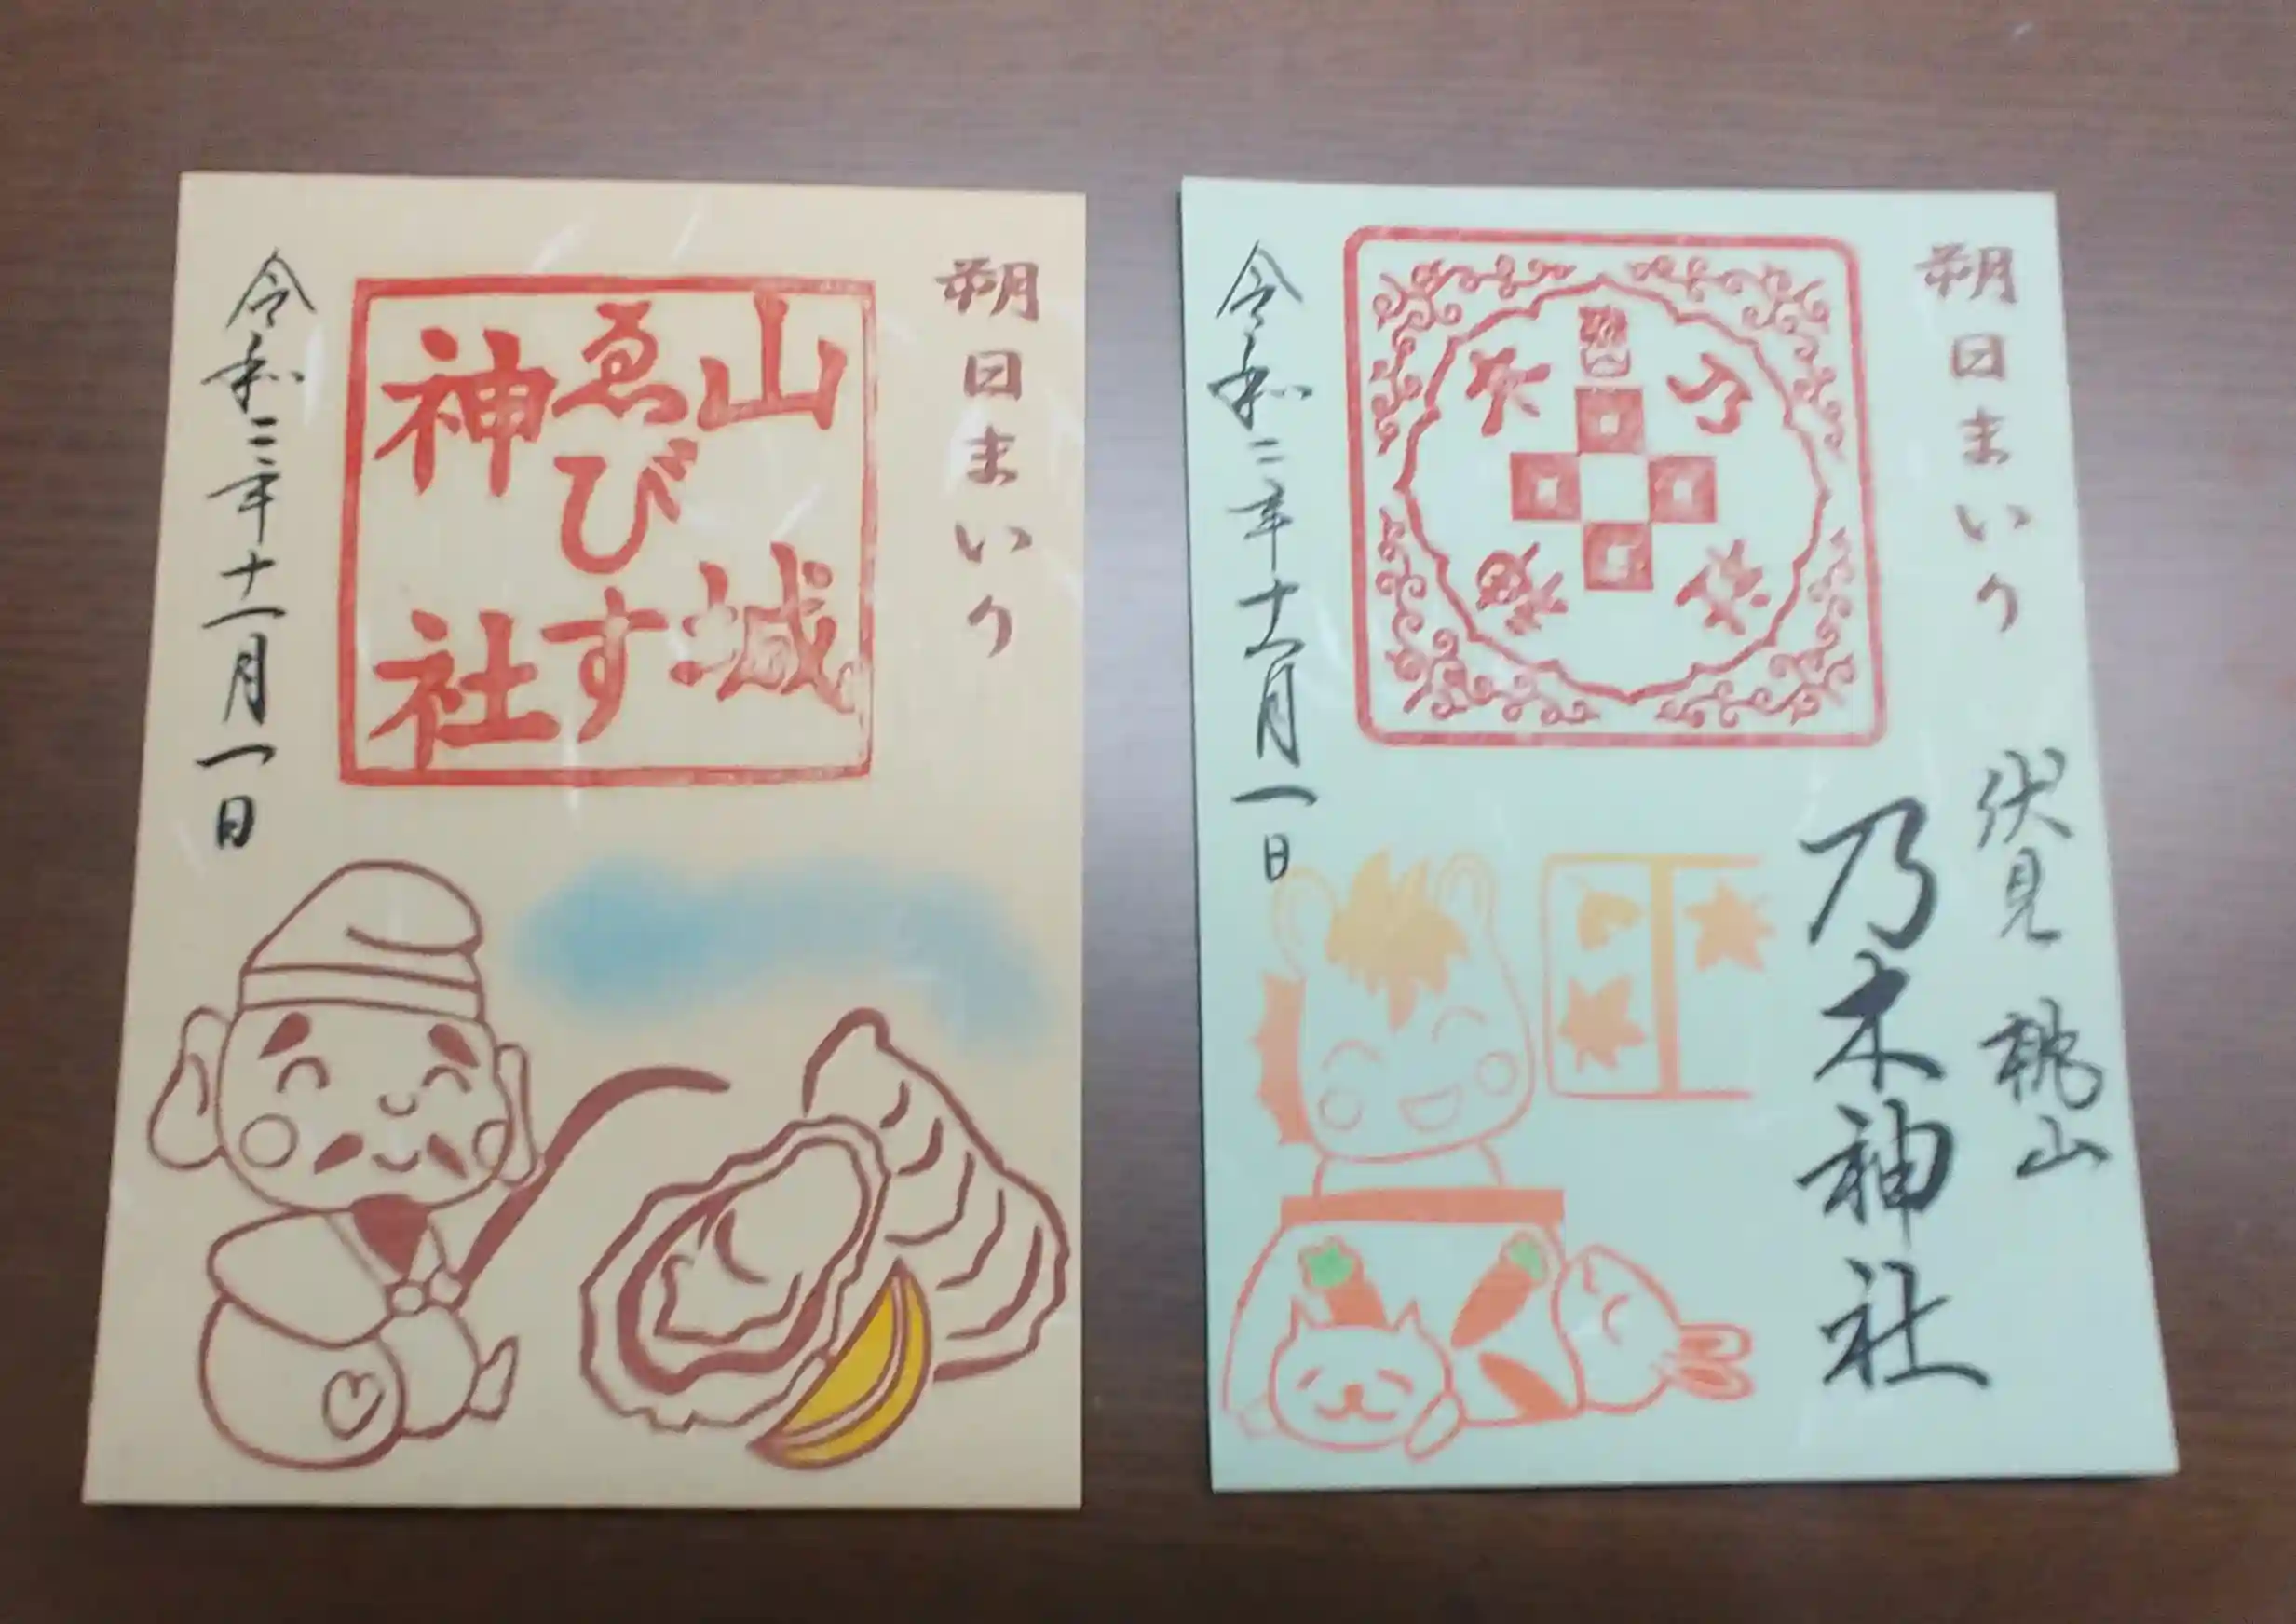 朔日まいり
山城
ゑびす
神社
令和三年十一月一日
朔日まいり
伏見桃山
乃木神社
令和三年十一月一日